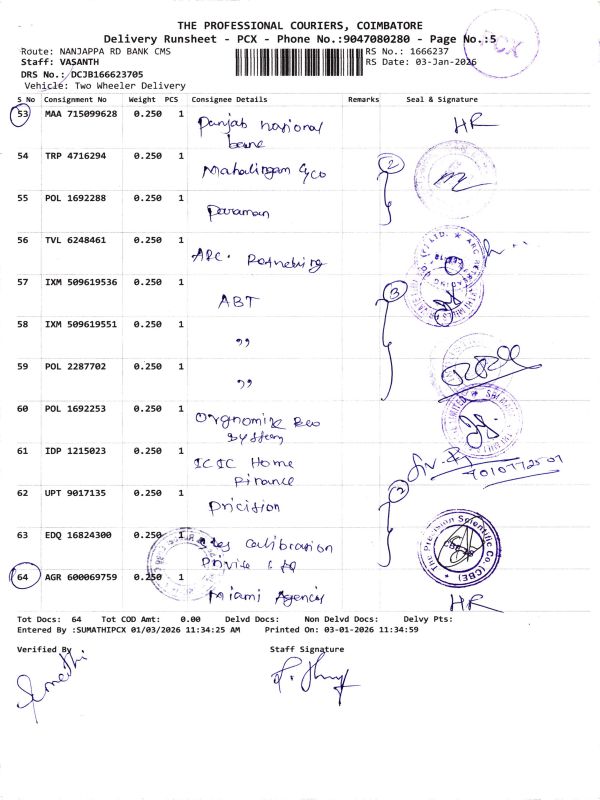 THE PROFESSIONAL COURIERS, COIMBATORE
Delivery Runsheet - PCX - Phone No.:9047080280 - Page No.:5
PCX
Route: NANJAPPA RD BANK CMS
RS No.: 1666237
Staff: VASANTH
RS Date: 03-Jan-2026
DRS No.: DCJB166623705
Vehicle: Two Wheeler Delivery
S No Consignment No Weight PCS Consignee Details Remarks Seal & Signature
53 MAA 715099628 0.250 1 Panjab National HR
54 TRP 4716294 0.250 1 Mahalingam & Co 2
55 POL 1692288 0.250 1
56 TVL 6248461 0.250 1 ARC.
57 IXM 509619536 0.250 1 ABT 3
58 IXM 509619551 0.250 1 ,,
59 POL 2287702 0.250 1 ,,
60 POL 1692253 0.250 1
61 IDP 1215023 0.250 1 ICIC Home
62 UPT 9017135 0.250 1 Pricision
63 EDQ 16824300 0.250 1 Calibration
The Precision Scientific Co. (CBE)
64 AGR 600069759 0.250 1 Miami Agency HR
Tot Docs: 64 Tot COD Amt: 0.00 Delvd Docs: Non Delvd Docs: Delvy Pts:
Entered By :SUMATHIPCX 01/03/2026 11:34:25 AM Printed On: 03-01-2026 11:34:59
Verified By Staff Signature